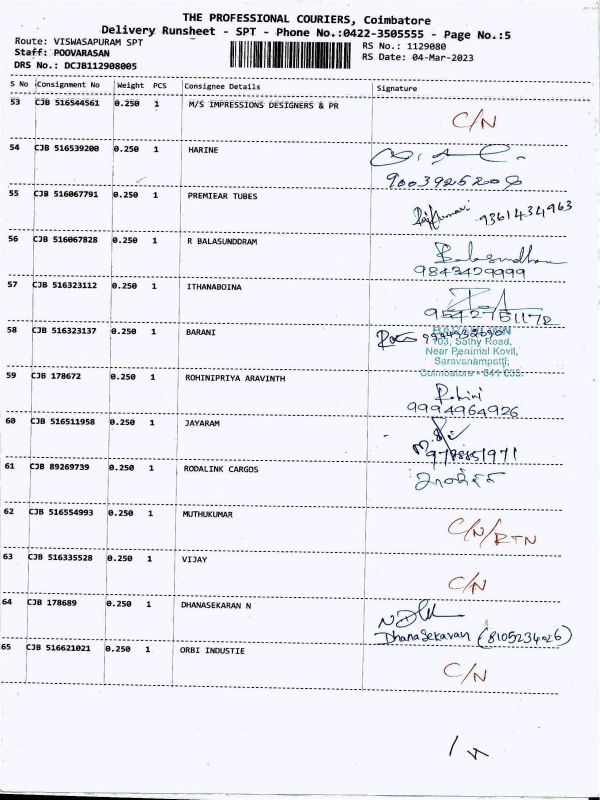 THE PROFESSIONAL COURIERS, Coimbatore
Delivery Runsheet - SPT - Phone No.:0422-3505555 - Page No.:5
Route: VISWASAPURAM SPT
RS No.: 1129080
Staff: POOVARASAN
RS Date: 04-Mar-2023
DRS No.: DCJB112908005
S No Consignment No Weight PCS Consignee Details Signature
53 CJB 516544561 0.250 1 M/S IMPRESSIONS DESIGNERS & PR C/N
54 CJB 516539200 0.250 1 HARINE
9003925200
55 CJB 516067791 0.250 1 PREMIEAR TUBES 9361434963
56 CJB 516067828 0.250 1 R BALASUNDDRAM
9843429999
57 CJB 516323112 0.250 1 ITHANABOINA
9542751172
58 CJB 516323137 0.250 1 BARANI
703, Sathy Road,
Near Perumal Kovil,
Saravanampatti,
Coimbatore - 641 035.
59 CJB 178672 0.250 1 ROHINIPRIYA ARAVINTH Rohini
9994964926
60 CJB 516511958 0.250 1 JAYARAM
61 CJB 89269739 0.250 1 RODALINK CARGOS
62 CJB 516554993 0.250 1 MUTHUKUMAR C/N/RTN
63 CJB 516335528 0.250 1 VIJAY C/N
64 CJB 178689 0.250 1 DHANASEKARAN N
Dhanasekaran (8105234026)
65 CJB 516621021 0.250 1 ORBI INDUSTIE C/N